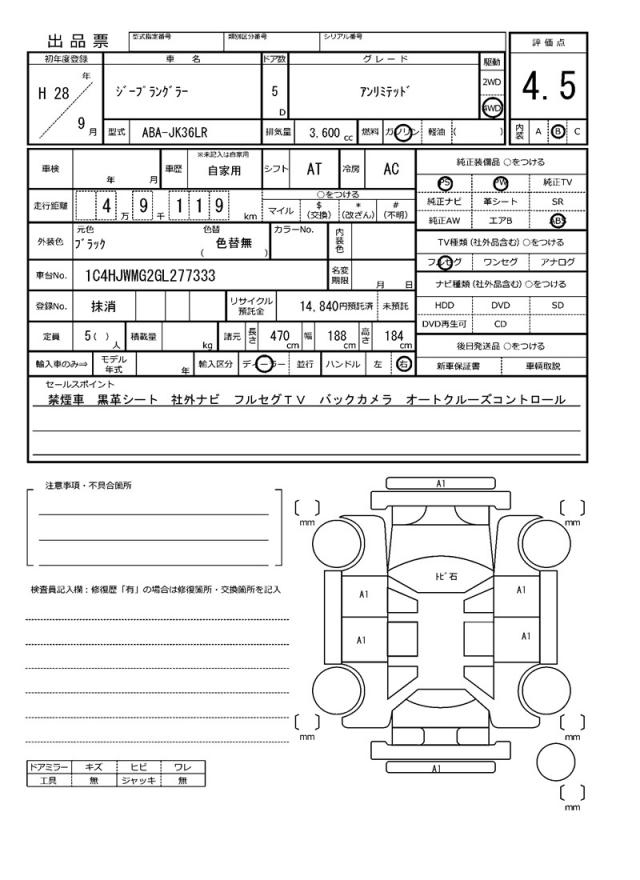 出品票
型式指定番号 類別区分番号 シリアル番号
評価点
初年度登録 車名 ドア数 グレード 駆動
H 28 年 9 月
ジープラングラー
5 D
アンリミテッド
2WD
4WD
4.5
型式 ABA-JK36LR 排気量 3,600 cc 燃料 ガソリン 軽油 ( )
内装 A B C
車検 年 月 車歴 ※未記入は自家用 自家用 シフト AT 冷房 AC
純正装備品 ○をつける
PS PW 純正TV
走行距離 4 万 9 千 1 1 9 km
○をつける
マイル $ (交換) * (改ざん) # (不明)
純正ナビ 革シート SR
純正AW エアB ABS
外装色 元色 ブラック 色替 ( 色替無 ) カラーNo. 内装色
TV種類 (社外品含む) ○をつける
フルセグ ワンセグ アナログ
車台No. 1C4HJWMG2GL277333 名変期限 月 日
ナビ種類 (社外品含む) ○をつける
HDD DVD SD
DVD再生可 CD
登録No. 抹消 リサイクル預託金 14,840円預託済 未預託
定員 5( ) 人 積載量 kg 諸元 長さ 470 cm 幅 188 cm 高さ 184 cm
後日発送品 ○をつける
新車保証書 車輌取説
輸入車のみ⇒ モデル年式 年 輸入区分 ディーラー 並行 ハンドル 左 右
セールスポイント
禁煙車 黒革シート 社外ナビ フルセグTV バックカメラ オートクルーズコントロール
注意事項・不具合箇所
検査員記入欄：修復歴「有」の場合は修復箇所・交換箇所を記入
A1
mm
mm
トビ石
A1
A1
A1
A1
mm
mm
A1
mm
ドアミラー キズ ヒビ ワレ
工具 無 ジャッキ 無